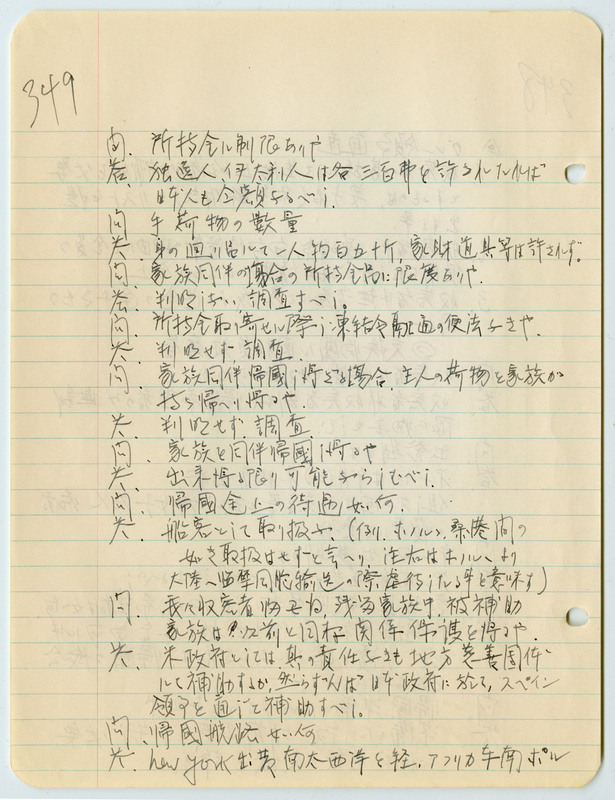 349
問、所持金ニ制限ありや
答、独逸人、伊太利人は各三百弗を許されたれば
日本人も同額なるべし.
問 手荷物の数量
答、身の廻り品にて一人約百五十斤,家財道具等は許されず。
問、家族同伴の場合の所持金品に限度ありや.
答、判明しない、調査すべし。
問、所持金取り寄せル際し凍結令融通の便法なきや.
答、判明せず、調査.
問、家族同伴帰國し得ざる場合、主人の荷物を家族が
持ち帰へり得るや.
答、判明せず、調査.
問、家族と同伴帰國し得るや
答、出来得る限り可能ならしむべし.
問、帰國途上の待遇如何.
答、船客として取り扱ふ、(例、ホノルル、桑港間の
如き取扱はせずと言へり、註右はホノルルより
大陸へ監禁同胞輸送の際虐待したる事を意味す)
問、我々収容者 ね、残留家族中、被補助
家族は 以前と同様関係保護を得るや.
答、米政府としては、其の責任なきも地方慈善團体
にて補助するか、然らずんば日本政府に於て、スペイン
領事を通じて補助すべし.
問、帰國航路如何
答、New York出費南大西洋を経、アフリカ東南ポル